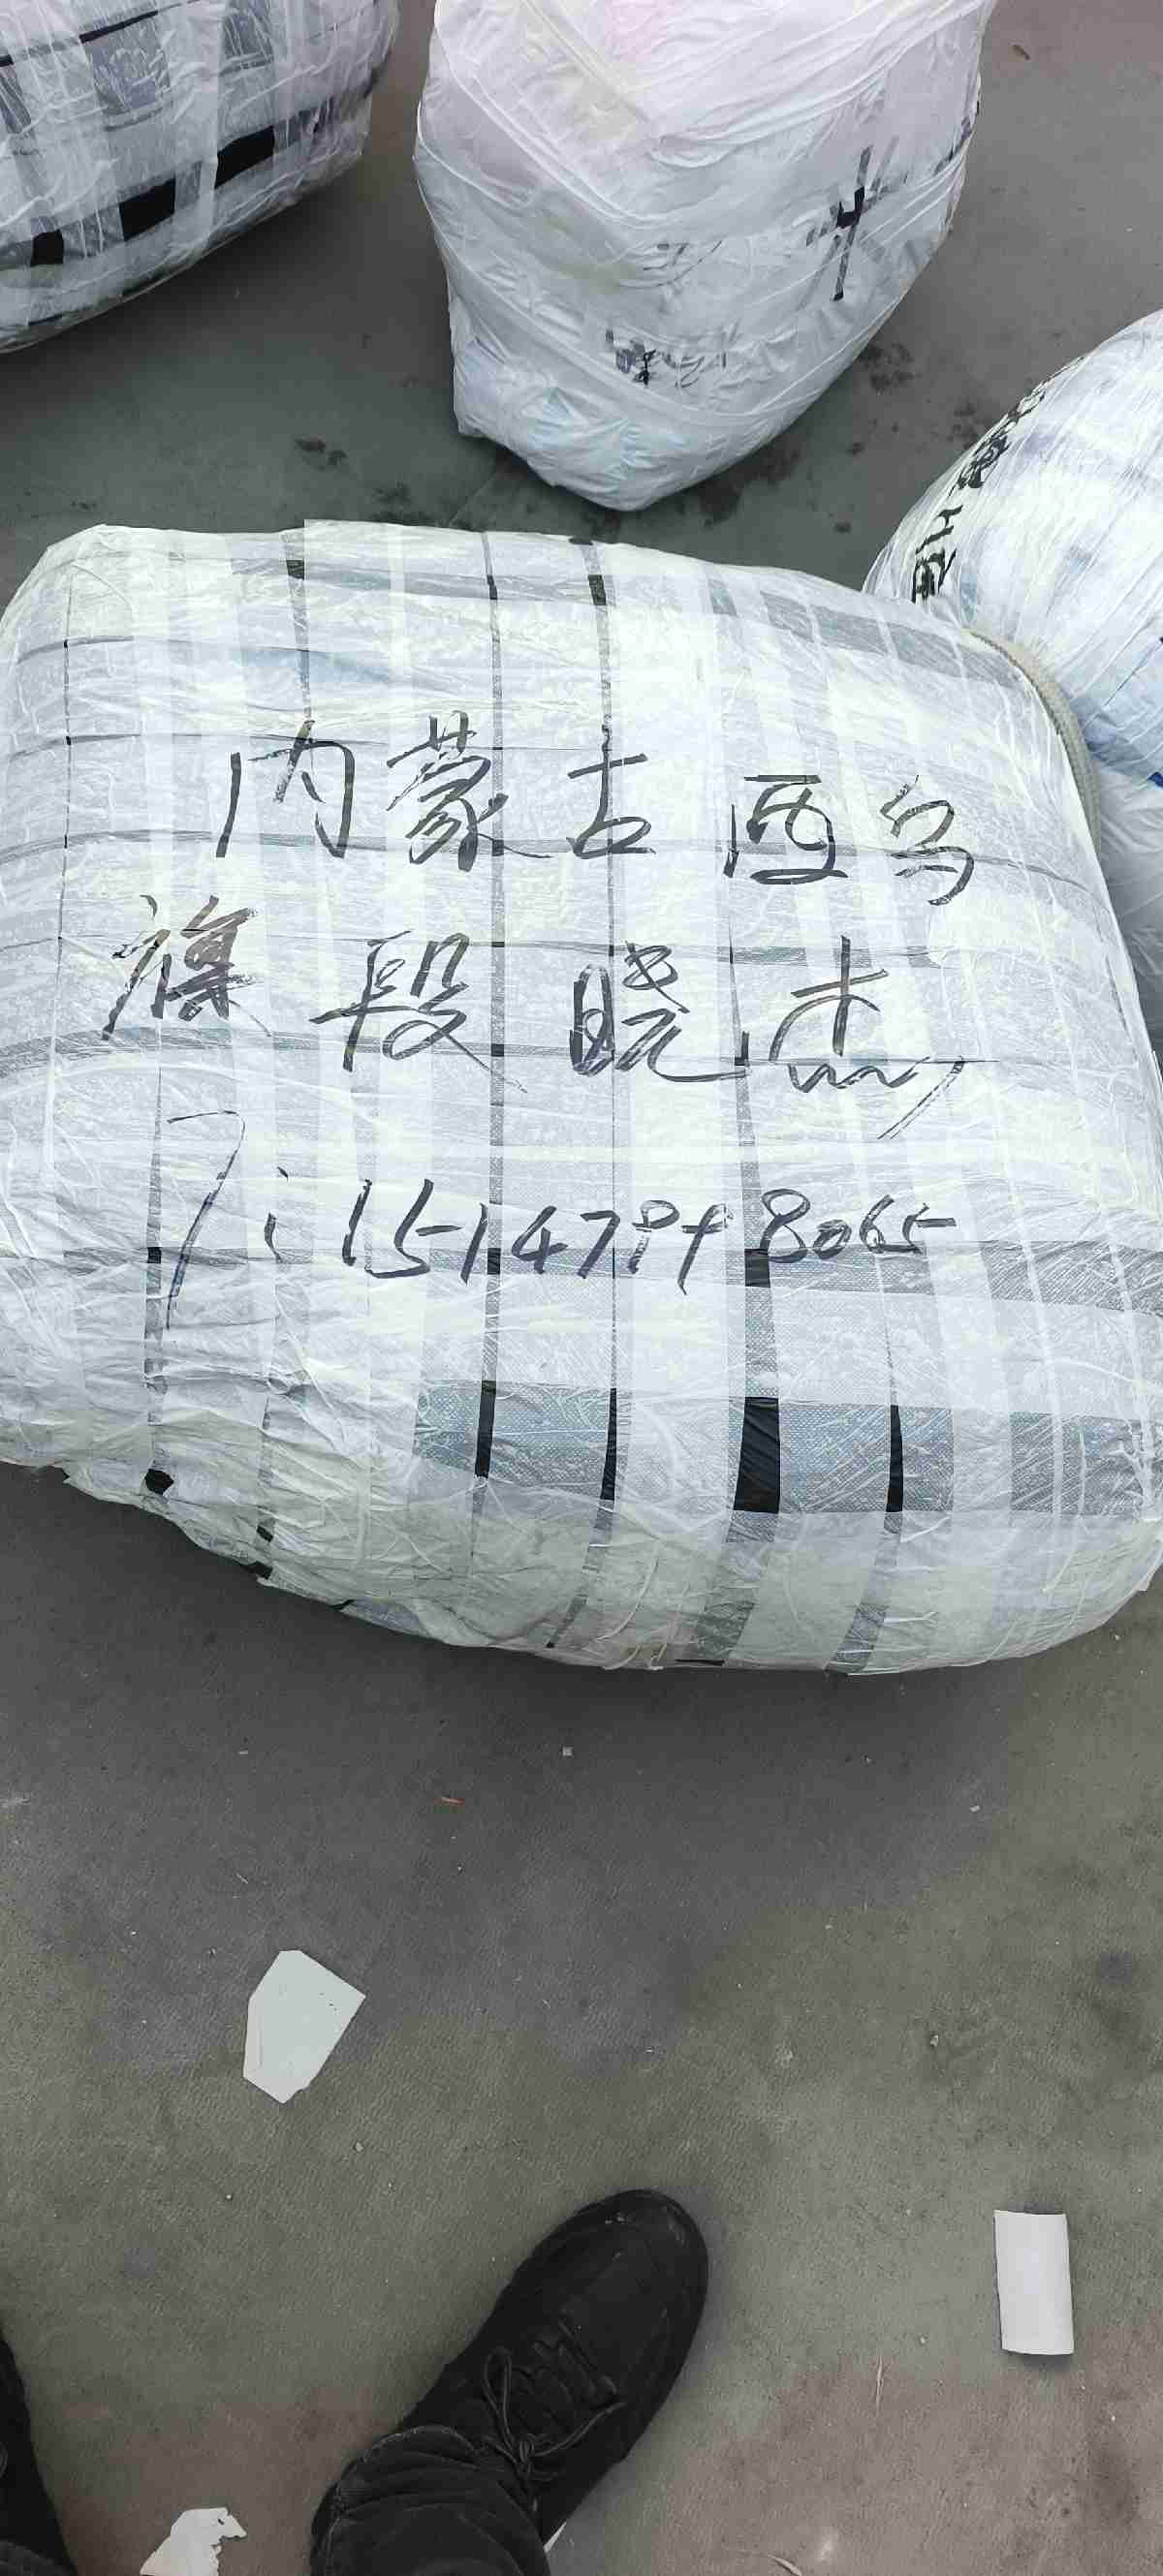 内蒙古西乌
旗段晓杰
T:15147998065